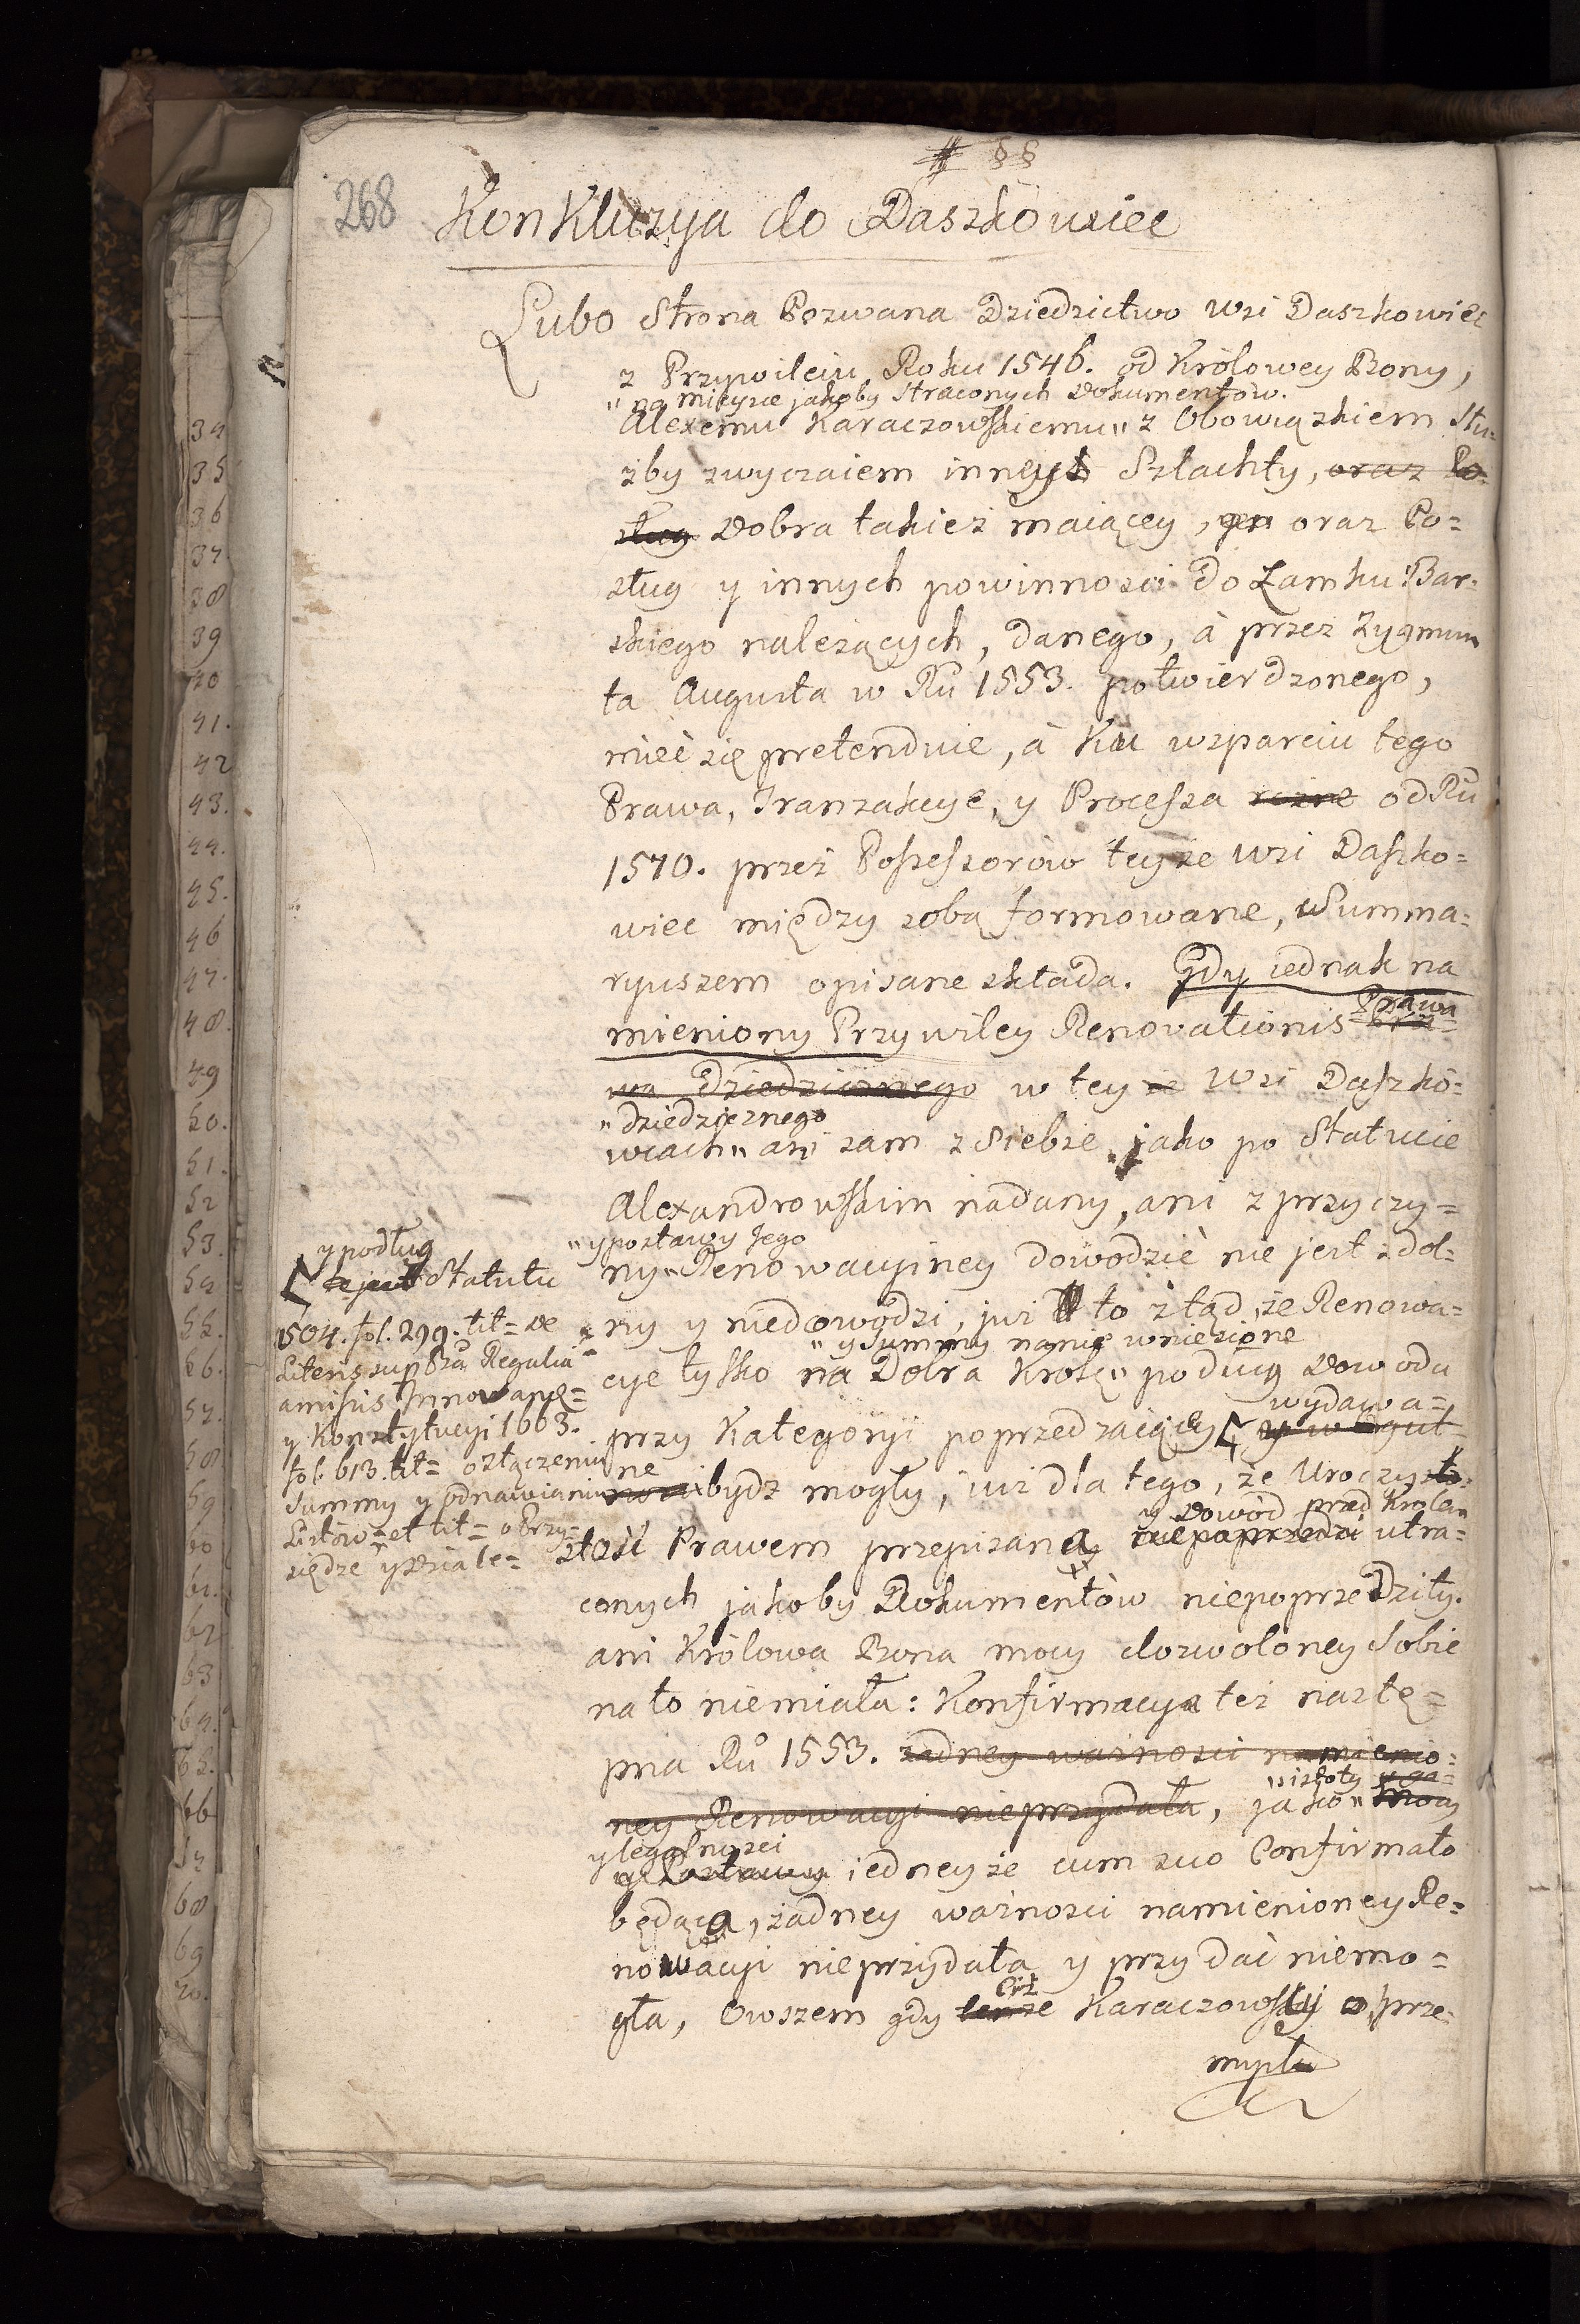 # §§
268
Konkluzya do Daszkowiec
Lubo Strona Pozwana Dziedzictwo Wsi Daszkowiec
z Przywileiu Roku 1546. od Królowey Bony,
„na mieysce jakoby straconych Dokumentow.
Alexemu Karaczowskiemu „ z Obowiązkiem słu-
żby zwyczaiem inney Szlachty, oraz Po-
sług Dobra takież maiącey, oraz Po=
sług y innych powinnosci do Zamku Bar-
skiego należących, danego, à przez Zygmun
ta Augusta w Rů 1553. potwierdzonego,
mieć się pretenduie, à Ku wsparciu tego
Prawa, Tranzakcye, y Processa rożne od Rů
1570. przez Possessorów teyże Wsi Daszko=
wiec między sobą formowane, Summa-
ryuszem opisane składa. Gdy iednak na
mieniony Przywiley Renovationis Prawa
wa Dziedzicznego w tey że Wsi Daszko-
„Dziedzicznego
wcach „ ani sam z siebie, jako po Statucie
Alexandrowskim nadany, ani z przyczy=
„y postawy Jego
ny „ Renowacyiney dowodzić nie jest zdol-
ny y niedowodzi, juź to ztąd, że Renowa=
„y Summy namie wniesione
cye tylko na Dobra Krolę „ podług Dowodu
przy Kategoryi poprzedzaiącey wydawa=
ne bydz mogły, iuż dla tego, że Uroczysto-
y Dowód przed Krolem
stość Prawem przepisana niepoprzedzi utra=
conych jakoby Dokumentòw niepoprzedziły.
ani Królowa Bona mocy dozwoloney sobie
na to niemiała: Konfirmacya też nastę=
pna Rů 1553. żadney ważnosci namienio=
ney Renowacyi nieprzydała, jako „ mocy
„istoty y ga=
y legalnosci
y Postawy iedneyże cum suo Confirmato
będąca, żadney ważnosci namienioney Re=
nowacyi nieprzydała y przydać niemo=
gła, Owszem gdy tenże Karaczowski o prze-
mysłu
y podług
Statutu
1504. fol. 299. tit= de
Literis sup Bra Regalia
amissis Innovand=
y Konstytucyi 1663.
fol. 613. tit= o złączeniu
Summy y odnawianiu
Listów= et tit= o Przy-
siędze y Dziale=
34
35
36
37
38
39
40
41.
42
43.
44.
45.
46
47.
48.
49
50.
51.
52
53.
54.
55.
56.
57.
58.
59.
60
61.
62
63
64.
65.
66
67
68
69
70.